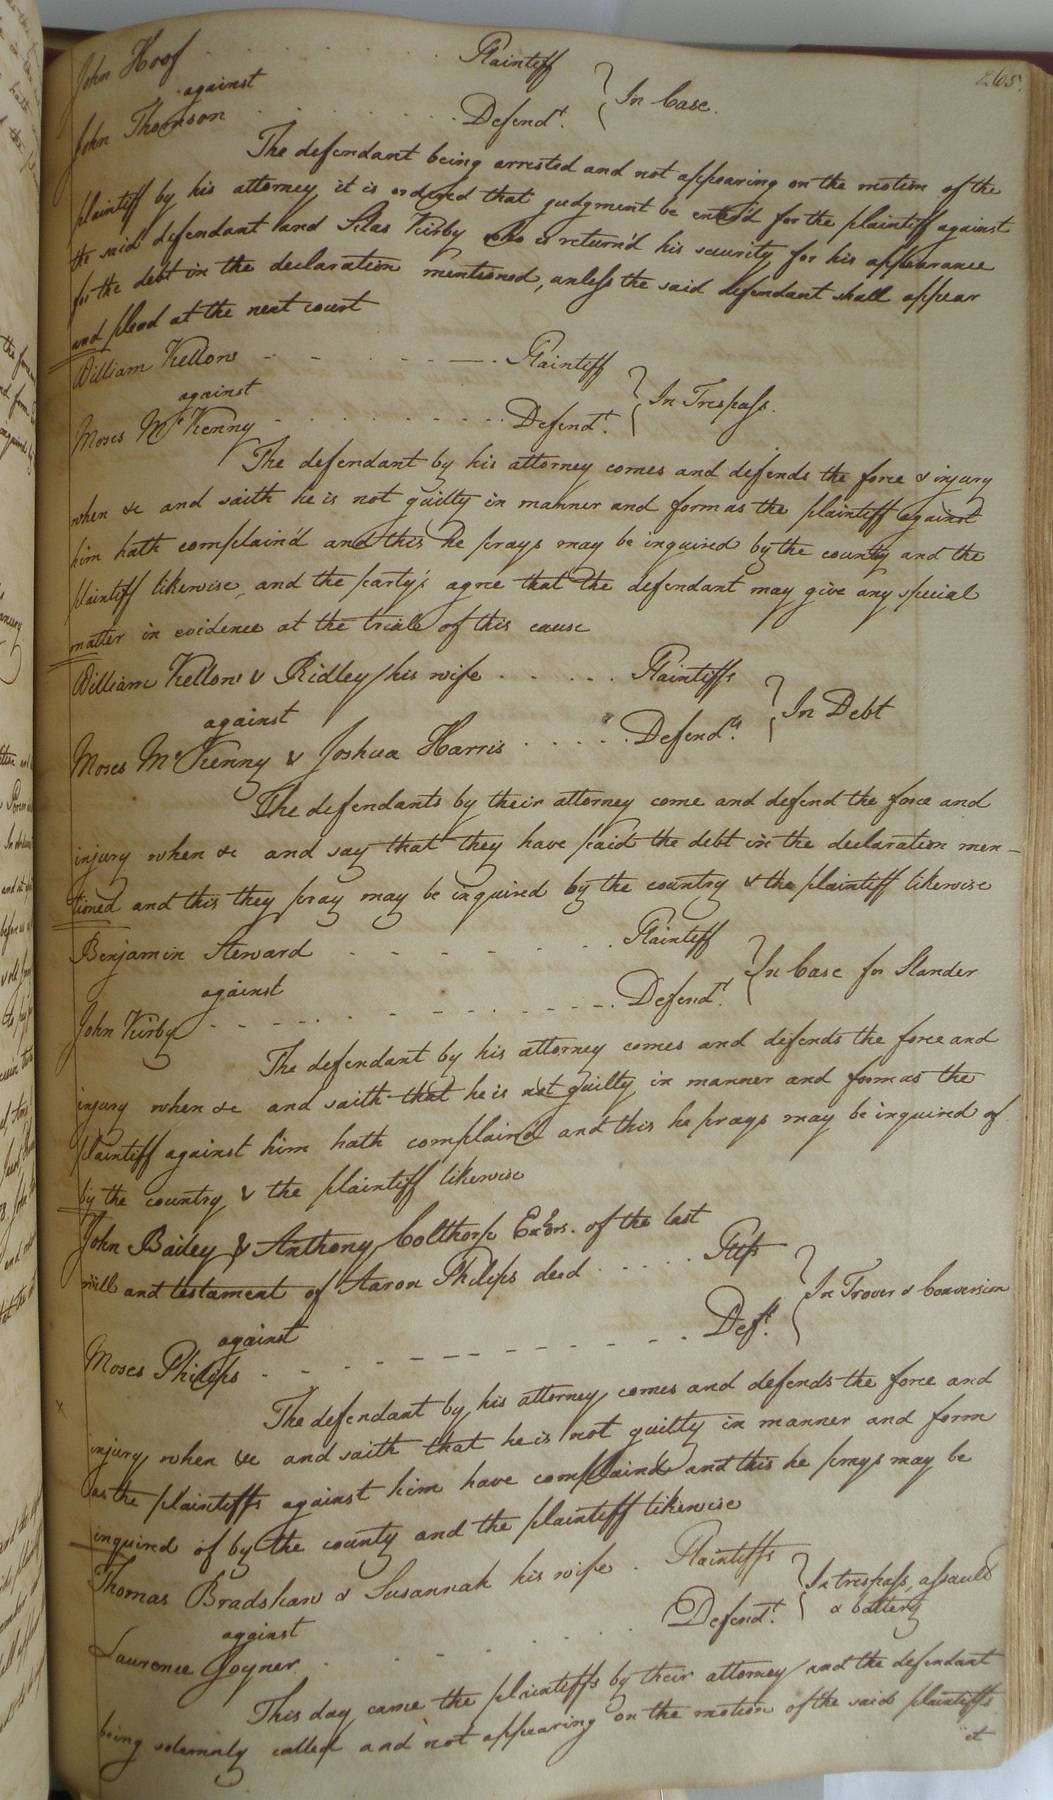 265.
John Hoof . . . . . . . Plaintiff
against } In Case.
John Thomson . . . . . . Defendt.
The defendant being arrested and not appearing on the motion of the
plaintiff by his attorney it is ordered that judgment be enter'd for the plaintiff against
the said defendant and Silas Kirby who is return'd his security for his appearance
for the debt in the declaration mentioned, unless the said defendant shall appear
and plead at the next court
William Vellons - - - - - Plaintiff
against } In Trespass.
Moses McKenny . . . . . . . Defendt.
The defendant by his attorney comes and defends the force & injury
when &c and saith he is not guilty in manner and form as the plaintiff against
him hath complain'd and this he prays may be inquired by the county and the
plaintiff likewise, and the party's agree that the defendant may give any special
matter in evidence at the trial of this cause
William Vellons & Ridley his wife . . . . . Plaintiffs
against } In Debt
Moses McKenny & Joshua Harris . . . . . Defendts.
The defendants by their attorney come and defend the force and
injury when &c and say that they have paid the debt in the declaration men-
tioned and this they pray may be inquired by the country & the plaintiff likewise
Benjamin Steward - - - - . . . Plaintiff
against } In Case for Slander
John Kirby - - - - - - - - - Defendt.
The defendant by his attorney comes and defends the force and
injury when &c and saith that he is not guilty in manner and form as the
plaintiff against him hath complaind and this he prays may be inquired of
by the country & the plaintiff likewise
John Bailey & Anthony Colthorp Exors. of the last
will and testament of Aaron Philips decd . . . . . Pltfs
against } In Trover & Conversion
Moses Philips - - - - - - - - - Deft.
The defendant by his attorney comes and defends the force and
injury when &c and saith that he is not guilty in manner and form
as the plaintiffs against him have complaind and this he prays may be
inquired of by the county and the plaintiff likewise
Thomas Bradshaw & Susannah his wife . Plaintiffs
against } In trespass, assault & battery
Laurence Joyner . . . . . . Defendt.
This day came the plaintiffs by their attorney and the defendant
being solemnly called and not appearing on the motion of the said plaintiffs
it